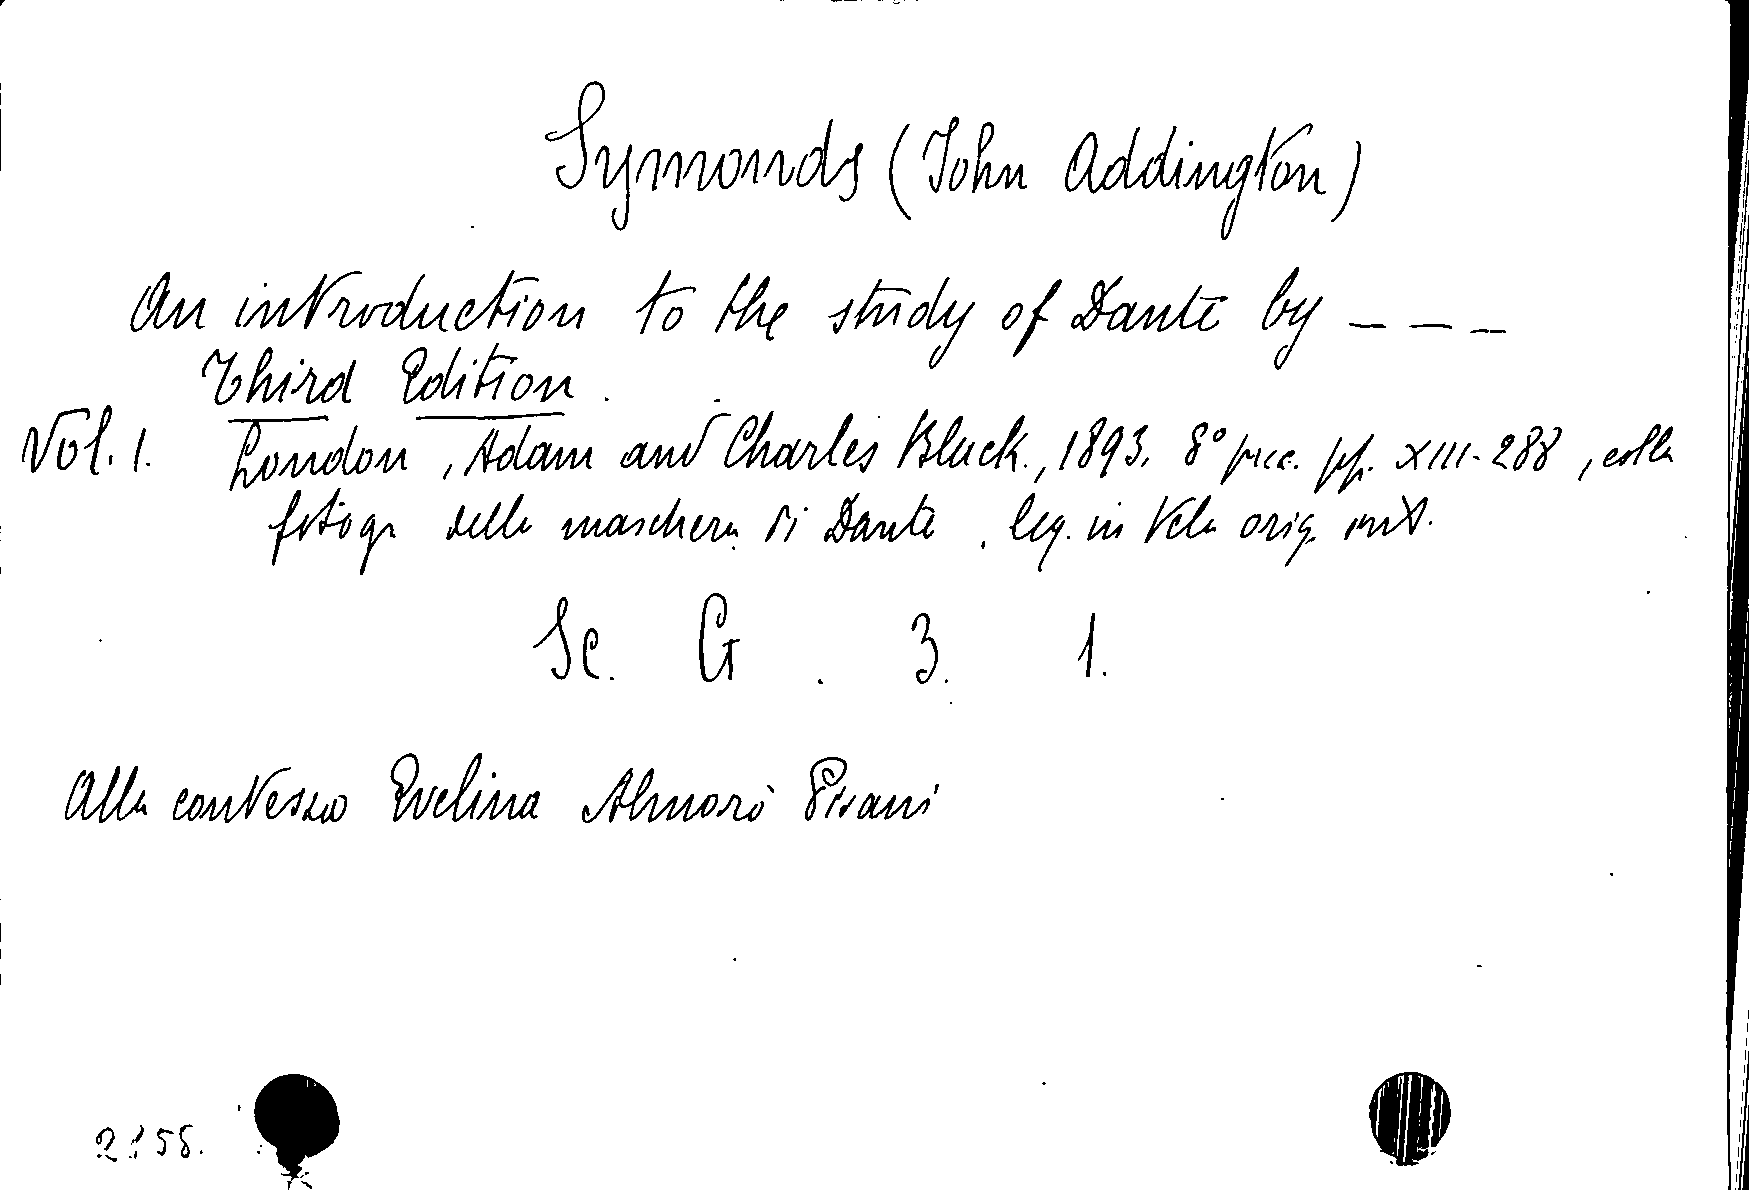 Symonds (John Addington)
An introduction to the study of Dante by _ _ _
Third Edition.
Vol. 1. London, Adam and Charles Black., 1893. 8° picc. pp. XIII-288, colla
fotogr. della maschera di Dante, leg. in tela orig. int.
Sc. G. 3. 1.
Alla contessa Evelina Almorò Pisani
2158.